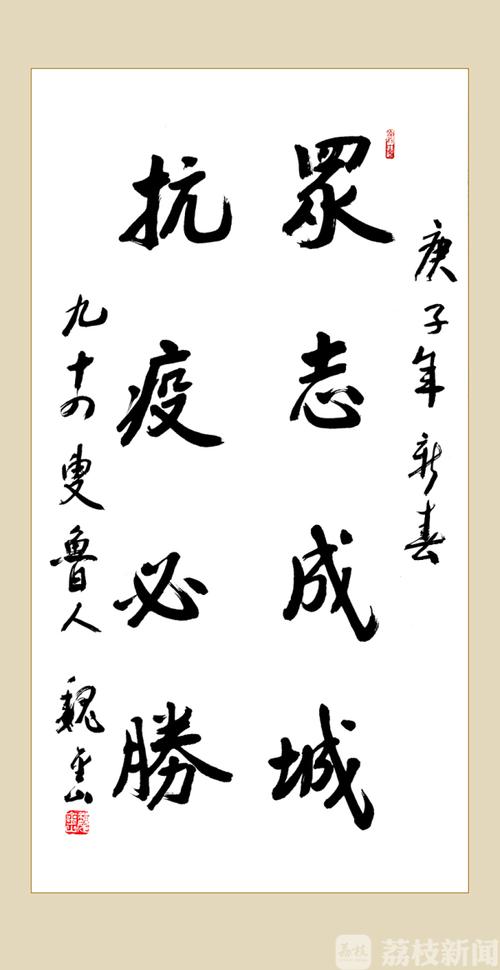 庚子年新春
眾志成城
抗疫必勝
九十四叟魯人 魏金山
荔枝新闻